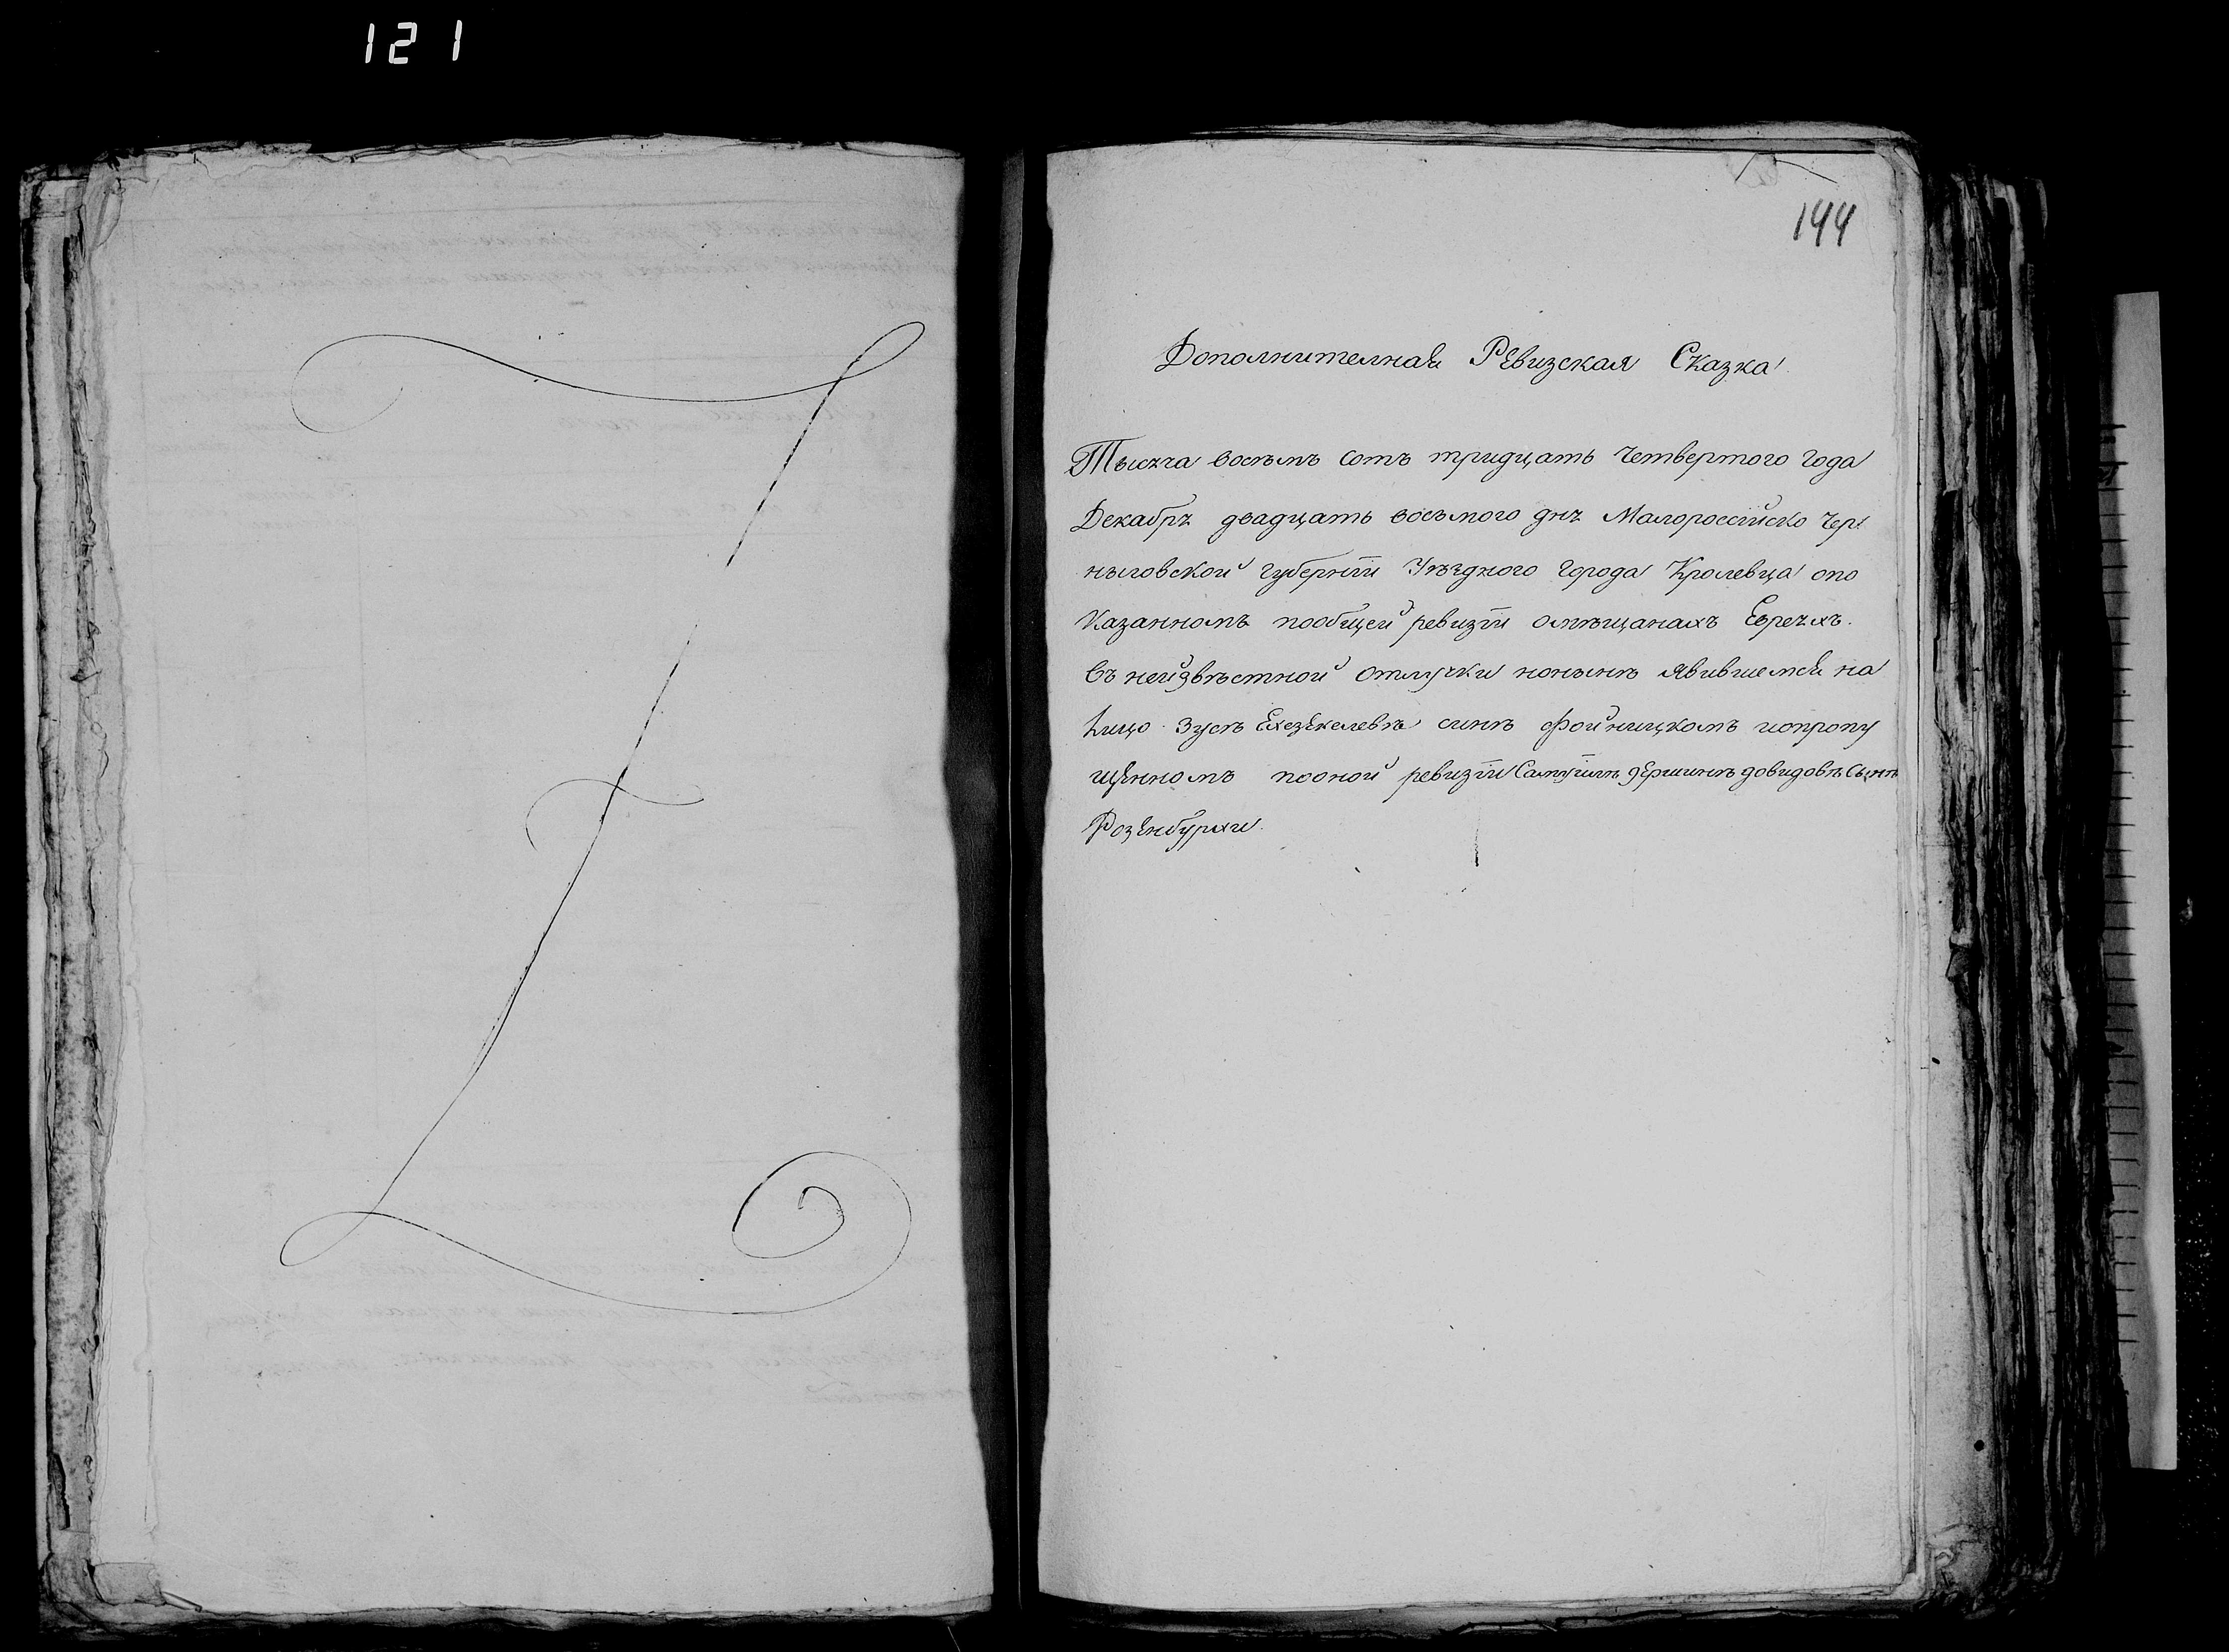 121
144
Дополнителная Ревизская Сказка
Тысяча восемъ сотъ тридцать четвертого года
Декабря двадцать восьмого дня Малороссійско Чер
ныговской губерніи Уѣздного города Кролевца опо
казанномъ пообщей ревизіи омѣщанахъ Евреяхъ.
Въ неизвѣстной отлучки нонынѣ явившемся на
лицо Зусѣ Ехезкелевѣ синѣ Фойницкомъ иопропу
щенномъ пооной ревизіи Самуілѣ Гершинѣ довидовѣ Сынѣ
Розенбурхи.